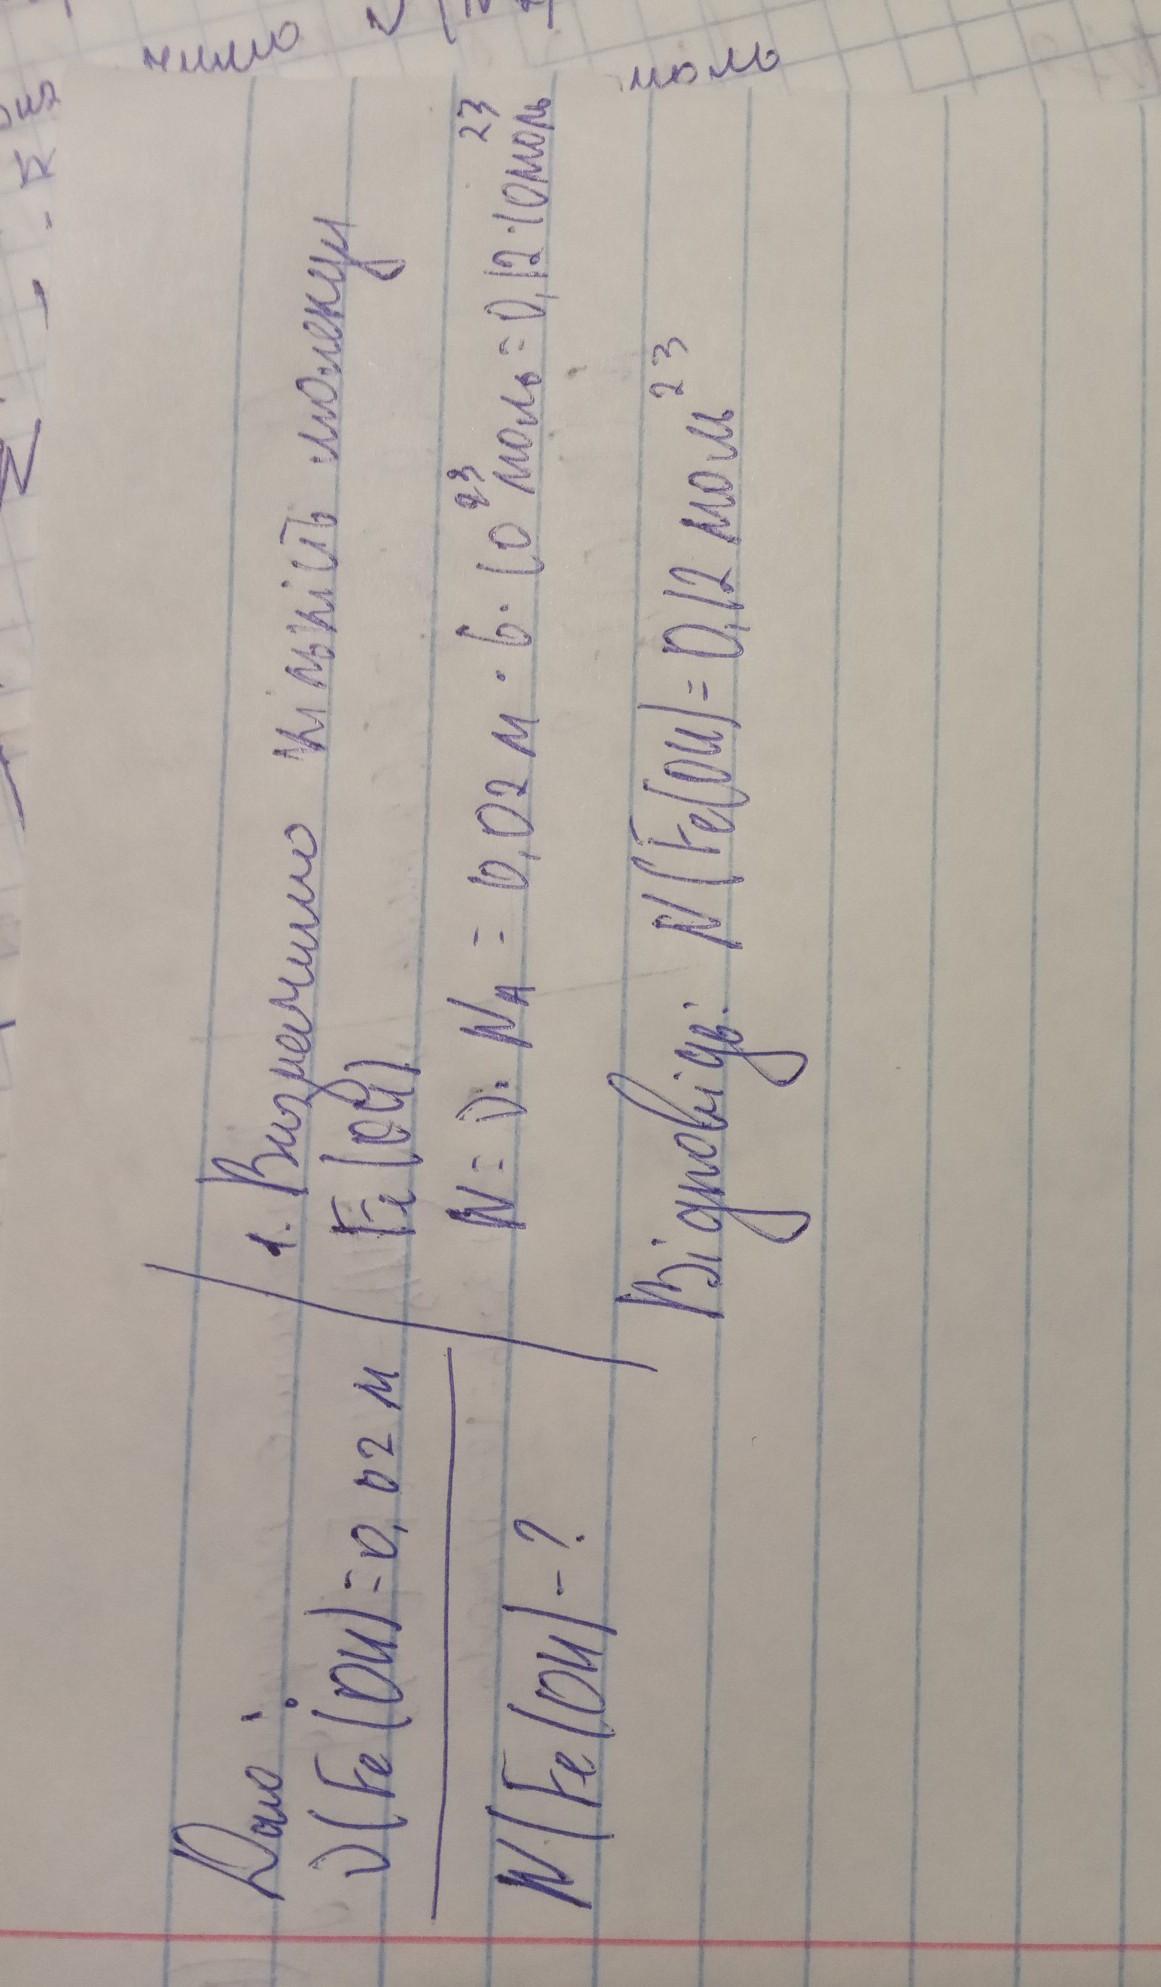 чимо
моль
Дано:
ν(Fe(OH)=0,02 м
N(Fe(OH)-?
1. Визначимо кількість молекул
Fe(OH)
N=ν·N_A=0,02 м·6·10²³ моль=0,12·10²³моль
Відповідь: N(Fe(OH)=0,12 моль²³